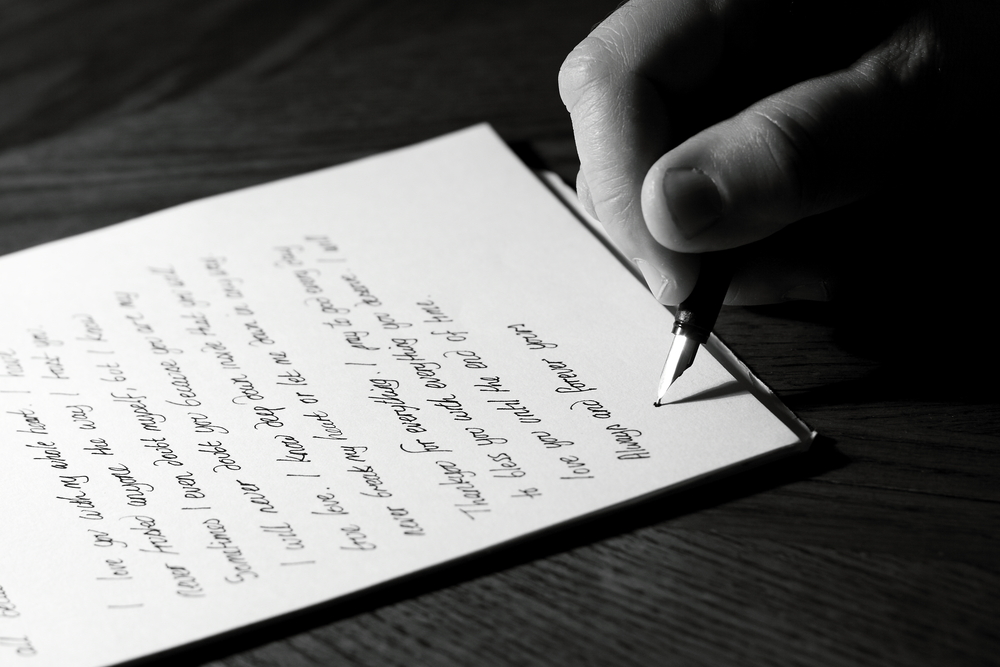 all
I love you with my whole heart. I have
never trusted anyone the way I trust you.
Sometimes I even doubt myself, but I know
I will never doubt you because you are my
true love. I know deep down inside that you will
never break my heart or let me down in any way.
Thankyou for everything. I pray to god every day
to bless you with everything you desire. I will
love you until the end of time.
Always and forever yours